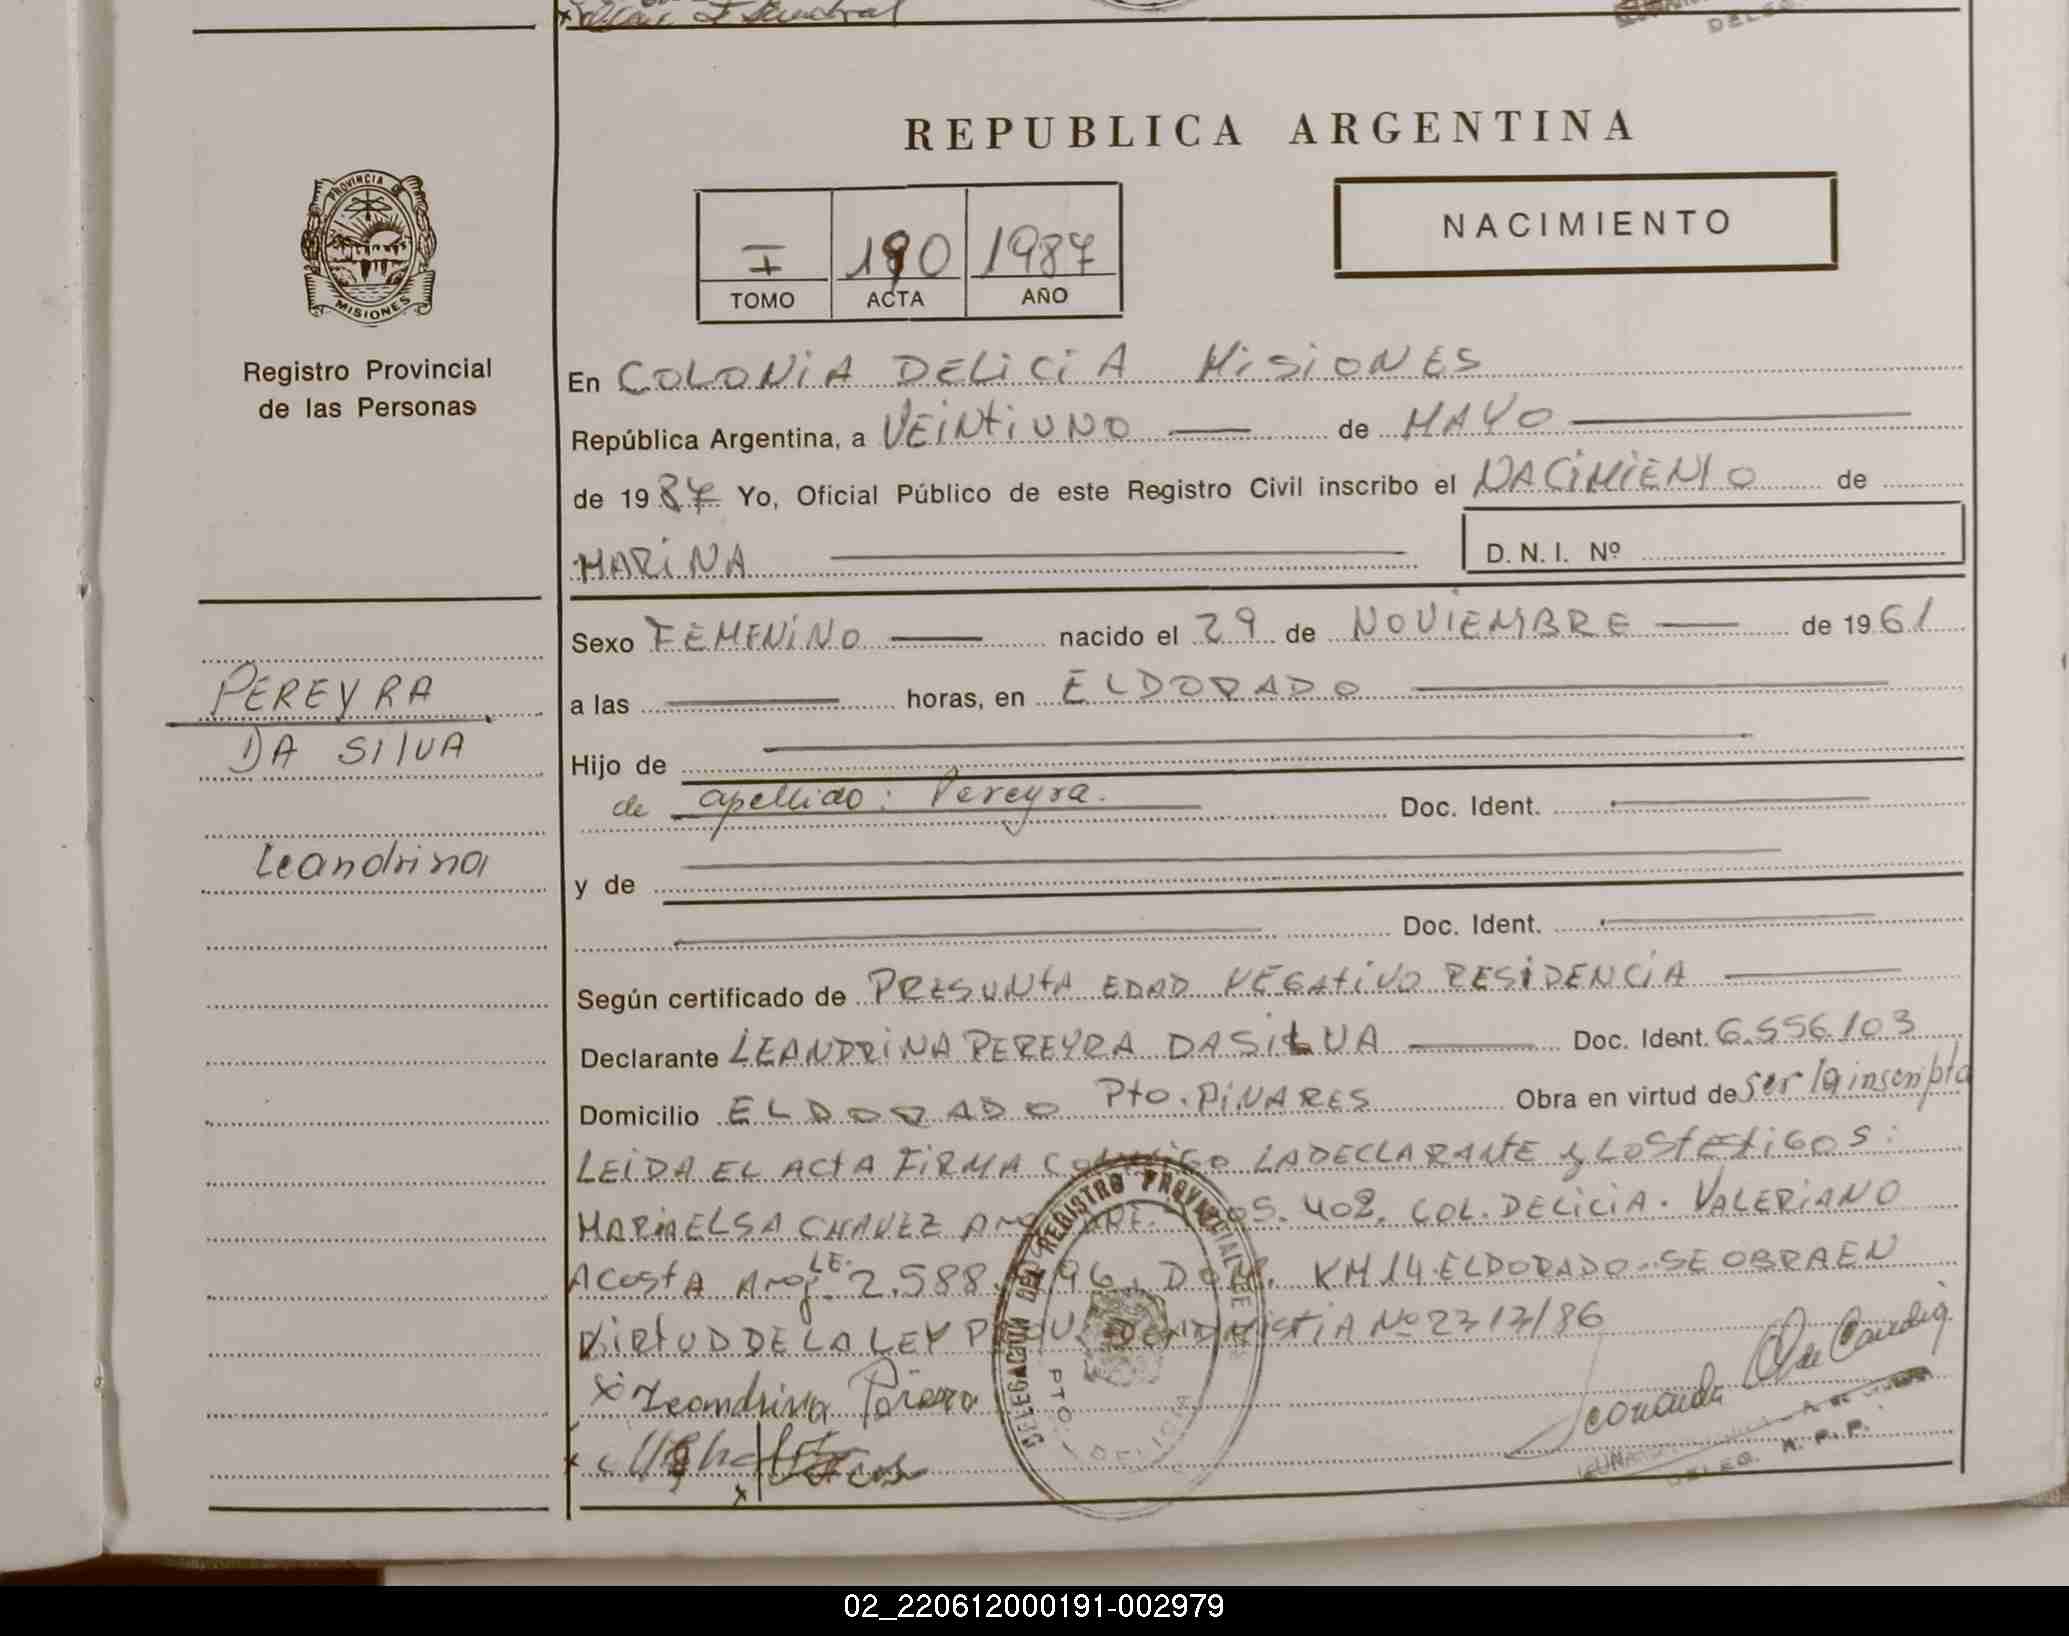 REPUBLICA ARGENTINA
NACIMIENTO
I 190 1987
TOMO ACTA AÑO
PROVINCIA DE
MISIONES
Registro Provincial
de las Personas
En COLONIA DELICIA MISIONES
República Argentina, a VEINTIUNO de MAYO
de 1987 Yo, Oficial Público de este Registro Civil inscribo el NACIMIENTO de
MARINA D.N.I. Nº
Sexo FEMENINO nacido el 29 de NOVIEMBRE de 1961
a las horas, en ELDORADO
PEREYRA
DA SILVA
Leandrina
Hijo de
de apellido: Pereyra. Doc. Ident.
y de
Doc. Ident.
Según certificado de PRESUNTA EDAD NEGATIVO RESIDENCIA
Declarante LEANDRINA PEREYRA DASILVA Doc. Ident. 6.556.103
Domicilio ELDORADO Pto. PINARES Obra en virtud de ser la inscripta
LEIDA EL ACTA FIRMA CONMIGO LA DECLARANTE y LOS TESTIGOS:
MARIA ELSA CHAVEZ 402. COL. DELICIA. VALERIANO
ACOSTA Arg. LE. 2.588. 96. DOM. KM 14 ELDORADO. SE OBRA EN
VIRTUD DE LA LEY DE AMNISTIA Nº 2313/86
x Leandrina
DELEGACION DEL REGISTRO PROVINCIAL DE
PTO. DELICIA
DELEG. R. P. P.
02_220612000191-002979